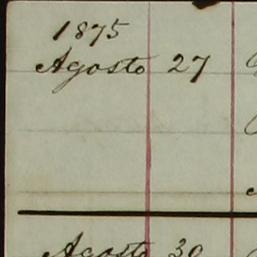 1875
Agosto 27
Agosto 30